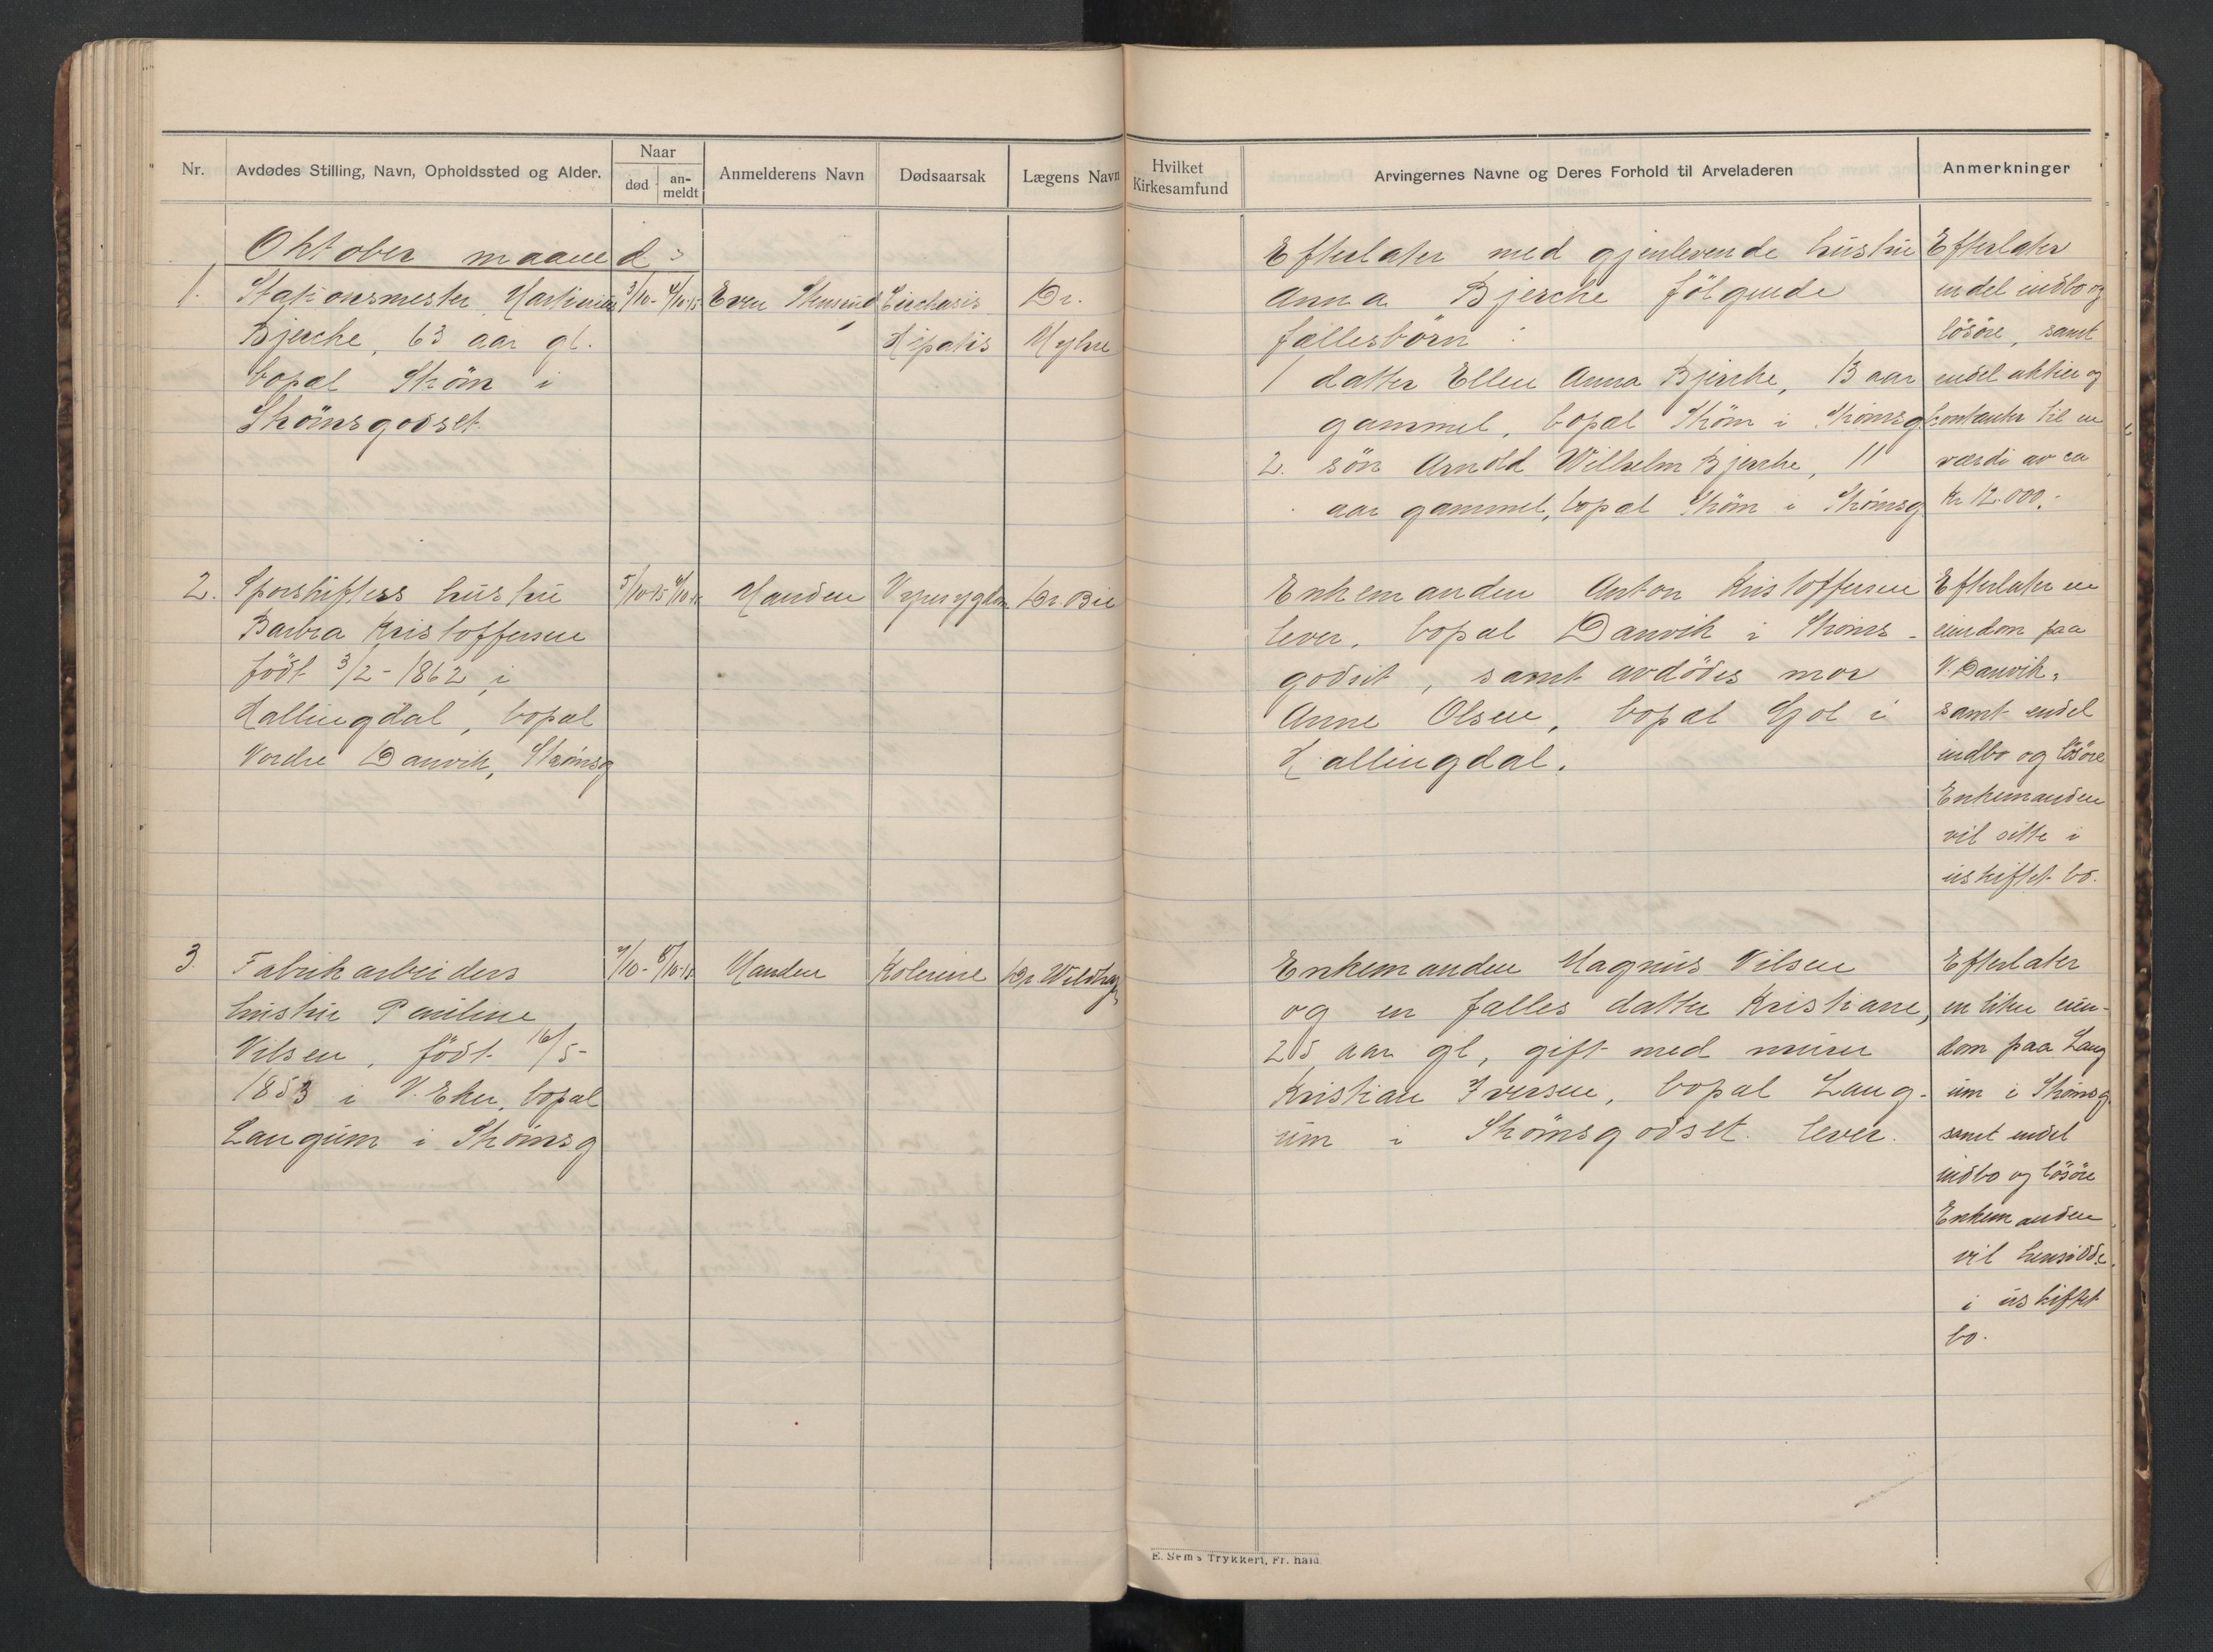 Nr.
Avdødes Stilling, Navn, Opholdssted og Alder.
Naar
død
an-
meldt
Anmelderens Navn
Dødsaarsak
Lægens Navn
Hvilket
Kirkesamfund
Arvingernes Navne og Deres Forhold til Arveladeren
Anmerkninger
Oktober maaned:
1. Stationsmester Martinius 3/10- 4/10-15 Even
Bjerche, 63 aar gl.
bopal Skön i
Skömsgodset.
Dr.
Myhre
Efterlater med gjenlevende hustru
Anna Bjerche fölgende
fallesbörn :
1 datter Ellen Anna Bjerche, 13 aar
gammel, bopal Skön i Skömsg.
2. sön Arnold Wilhelm Bjerche, 11
aar gammel, bopal Skön i Skömsg.
Efterlater
endel indbo og
lösöre, samt
endel aktier og
kontanter til en
værdi av ca
Kr 12.000.-
2. Sporskifters hustru 5/10-15 Manden Dr. Bie
Barbra Kristoffersen
födt 3/2-1862 i
Hallingdal, bopal
Nordre Danvik, Strömsg
Enkemanden Anton Kristoffersen
lever, bopal Danvik i Ströms-
godset, samt avdödes mor
Anne Olsen, bopal Gol i
Hallingdal.
Efterlater en
eiendom paa
N. Danvik,
samt endel
indbo og lösöre
Enkemanden
vil sitte i
uskiftet bo.
3. Fabrikarbeiders 7/10- 8/10-15 Manden Dr. Wildhagen
hustru Pauline
Nilsen, födt 16/5-
1853 i N. Eker, bopal
Langum i Skömsg
Enkemanden Magnus Nilsen
og en falles datter Kristiane,
25 aar gl, gift med murer
Kristian Iversen, bopal Lang-
um i Skömsgodset. lever.
Efterlater
en liten eien-
dom paa Lang
um i Skömsg.
samt endel
indbo og lösöre
Enkemanden
vil hensidde
i uskiftet
bo.
E. Sem's Trykkeri, Fr.hald.